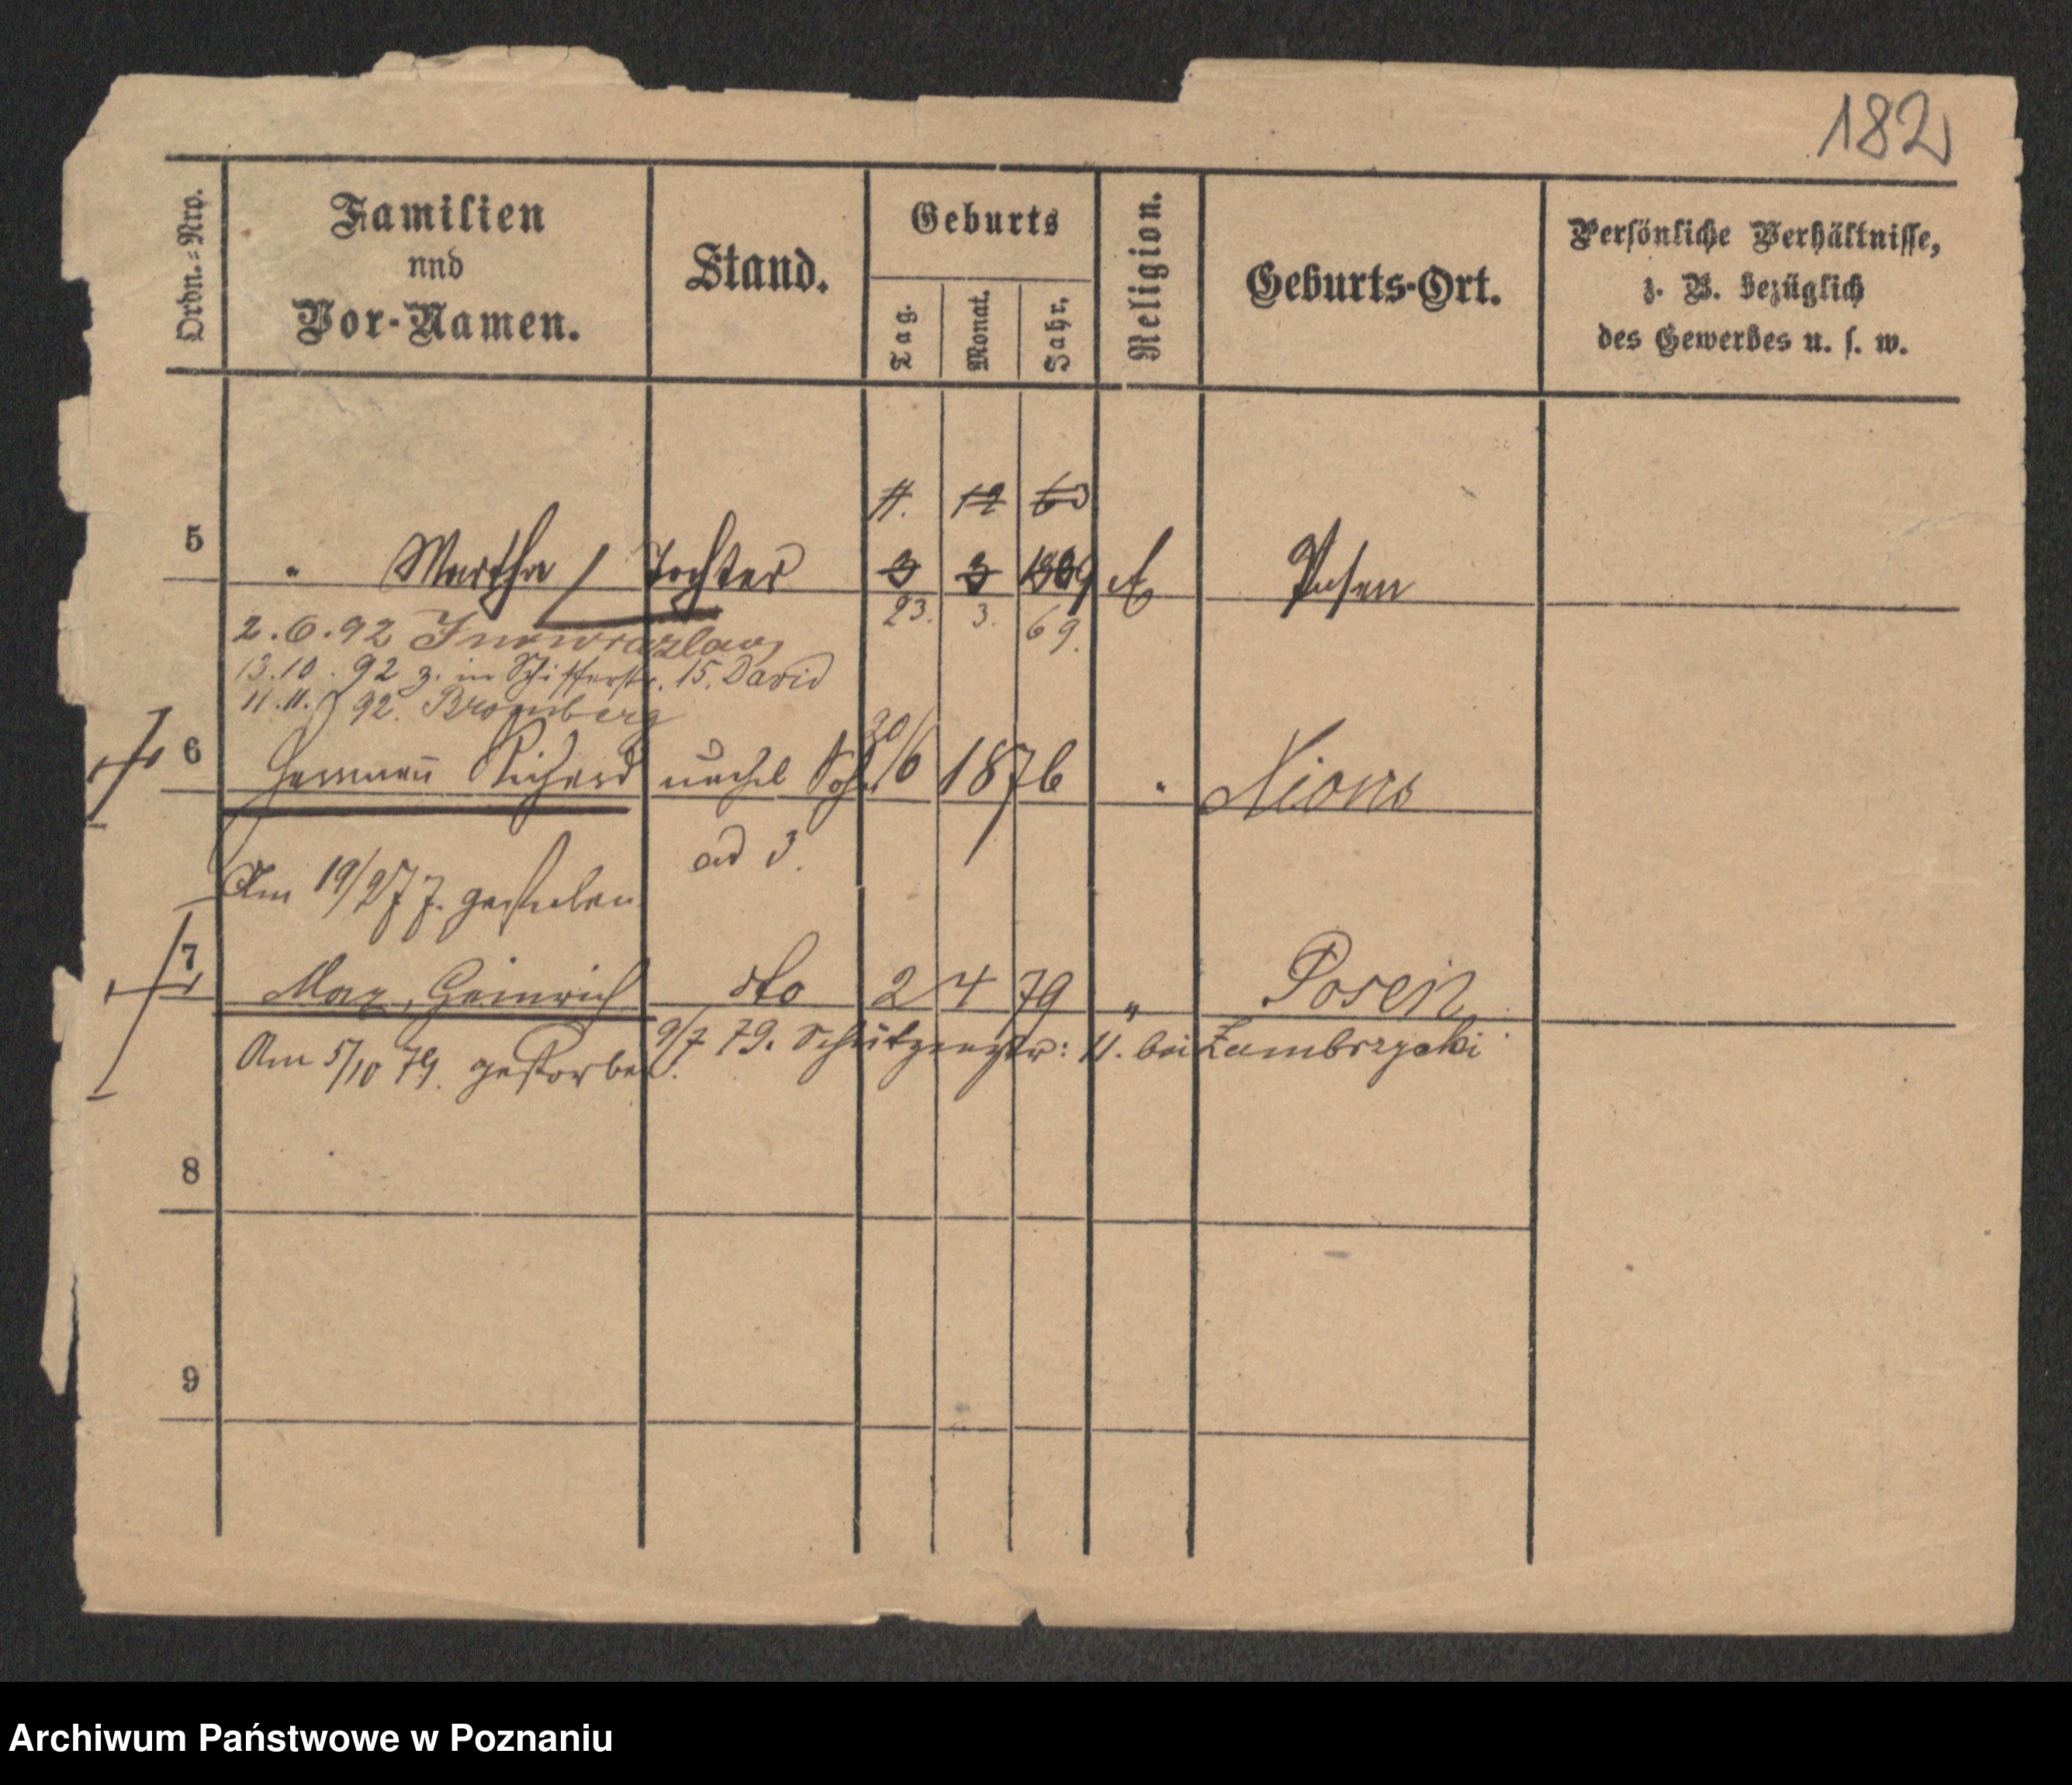 182
Ordn.-Nro.
Familien
und
Vor-Namen.
Stand.
Geburts
Tag.
Monat.
Jahr.
Religion.
Geburts-Ort.
Persönliche Verhältnisse,
z. B. bezüglich
des Gewerbes u. s. w.
11. 12 63
5 " Martha Tochter 3 3 1869 Posen
23. 3. 69.
2.6.92 Inowrazlaw
13.10.92 z. in Schifferstr. 15. David
11.11.92. Bromberg
6 Hermann Richard unehel Sohn 20/6 1876 " Xions
ad 3.
Am 19/2 77. gestorben
7 Max, Heinrich dto 2 4 79 " Posen
9/7 79. Schützenstr: 11. bei Zambrzycki
Am 5/10 79. gestorben.
8
9
Archiwum Państwowe w Poznaniu